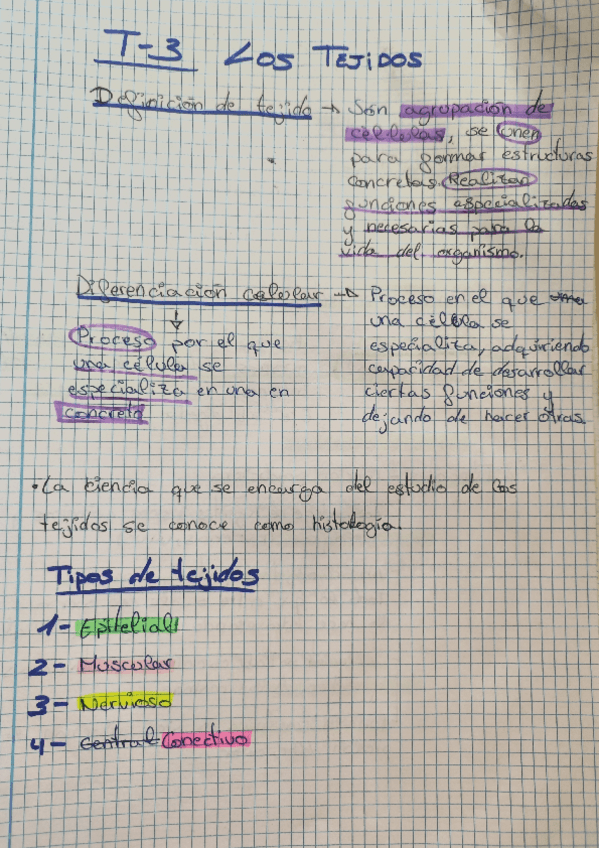 T-3 Los Tejidos
Definición de tejido → Son agrupación de
células, se unen
para formar estructuras
concretas. Realizan
funciones especializadas
y necesarias para la
vida del organismo.
Diferenciación celular → Proceso en el que una
una célula se
especializa, adquiriendo
capacidad de desarrollar
ciertas funciones y
dejando de hacer otras
↓
Proceso por el que
una célula se
especializa en una en
concreto
• La ciencia que se encarga del estudio de los
tejidos se conoce como histología.
Tipos de tejidos
1- Epitelial
2- Muscular
3- Nervioso
4- Central Conectivo